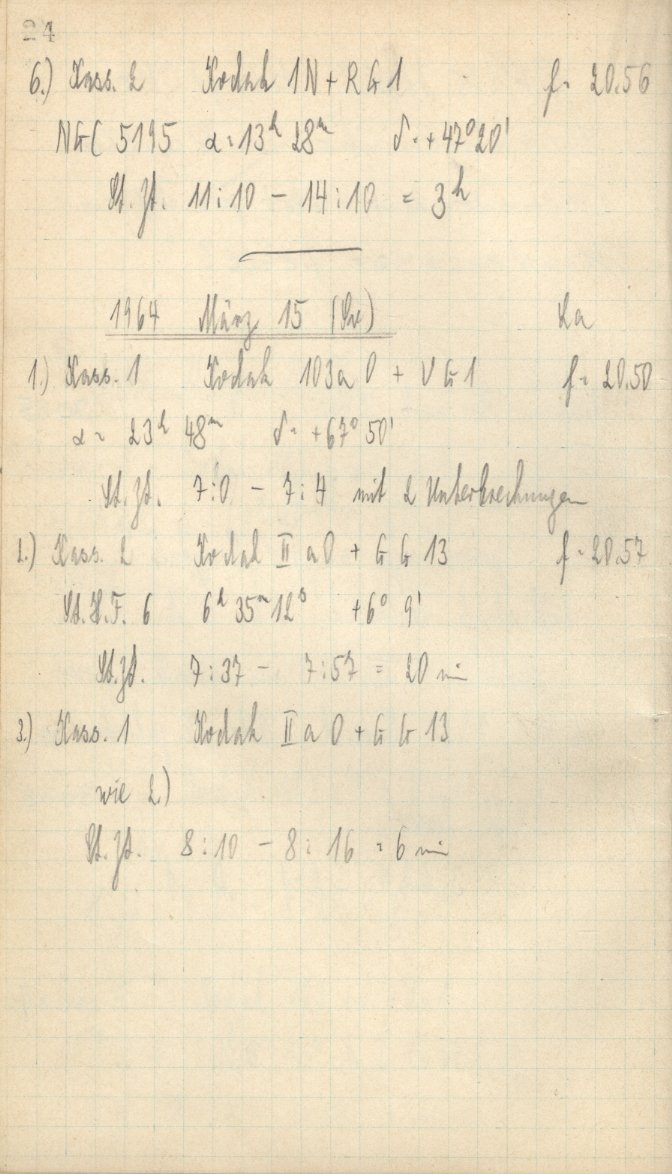 24
6.) Kass. 2 Kodak 1N + RG1 f = 20.56
NGC 5195 α = 13h 28m δ = +47° 20'
St. Zt. 11:10 – 14:10 = 3h
1964 März 15 (So) La
1.) Kass. 1 Kodak 103a O + UG1 f = 20.50
α = 23h 48m δ = +67° 50'
St. Zt. 7:0 – 7:4 mit 2 Unterbrechungen
2.) Kass. 2 Kodak II a O + GG 13 f = 20.57
St. H. F. 6 6h 35m 12s +6° 9'
St. Zt. 7:37 – 7:57 = 20 min
3.) Kass. 1 Kodak II a O + GG 13
wie 2.)
St. Zt. 8:10 – 8:16 = 6 min